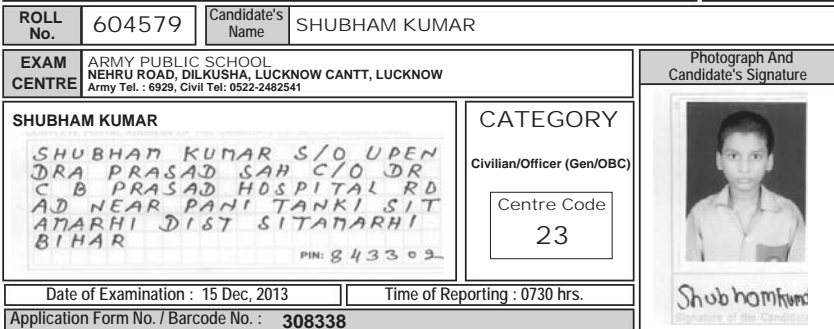 ROLL No. 604579 Candidate's Name SHUBHAM KUMAR
EXAM CENTRE
ARMY PUBLIC SCHOOL
NEHRU ROAD, DILKUSHA, LUCKNOW CANTT, LUCKNOW
Army Tel. : 6929, Civil Tel: 0522-2482541
Photograph And
Candidate's Signature
SHUBHAM KUMAR
SHUBHAM KUMAR S/O UPEN
DRA PRASAD SAH C/O DR
C B PRASAD HOSPITAL RO
AD NEAR PANI TANKI SIT
AMARHI DIST SITAMARHI
BIHAR
PIN: 843302
CATEGORY
Civilian/Officer (Gen/OBC)
Centre Code
23
Shubhamkuma
Signature of the Candidate
Date of Examination : 15 Dec, 2013 Time of Reporting : 0730 hrs.
Application Form No. / Barcode No. : 308338